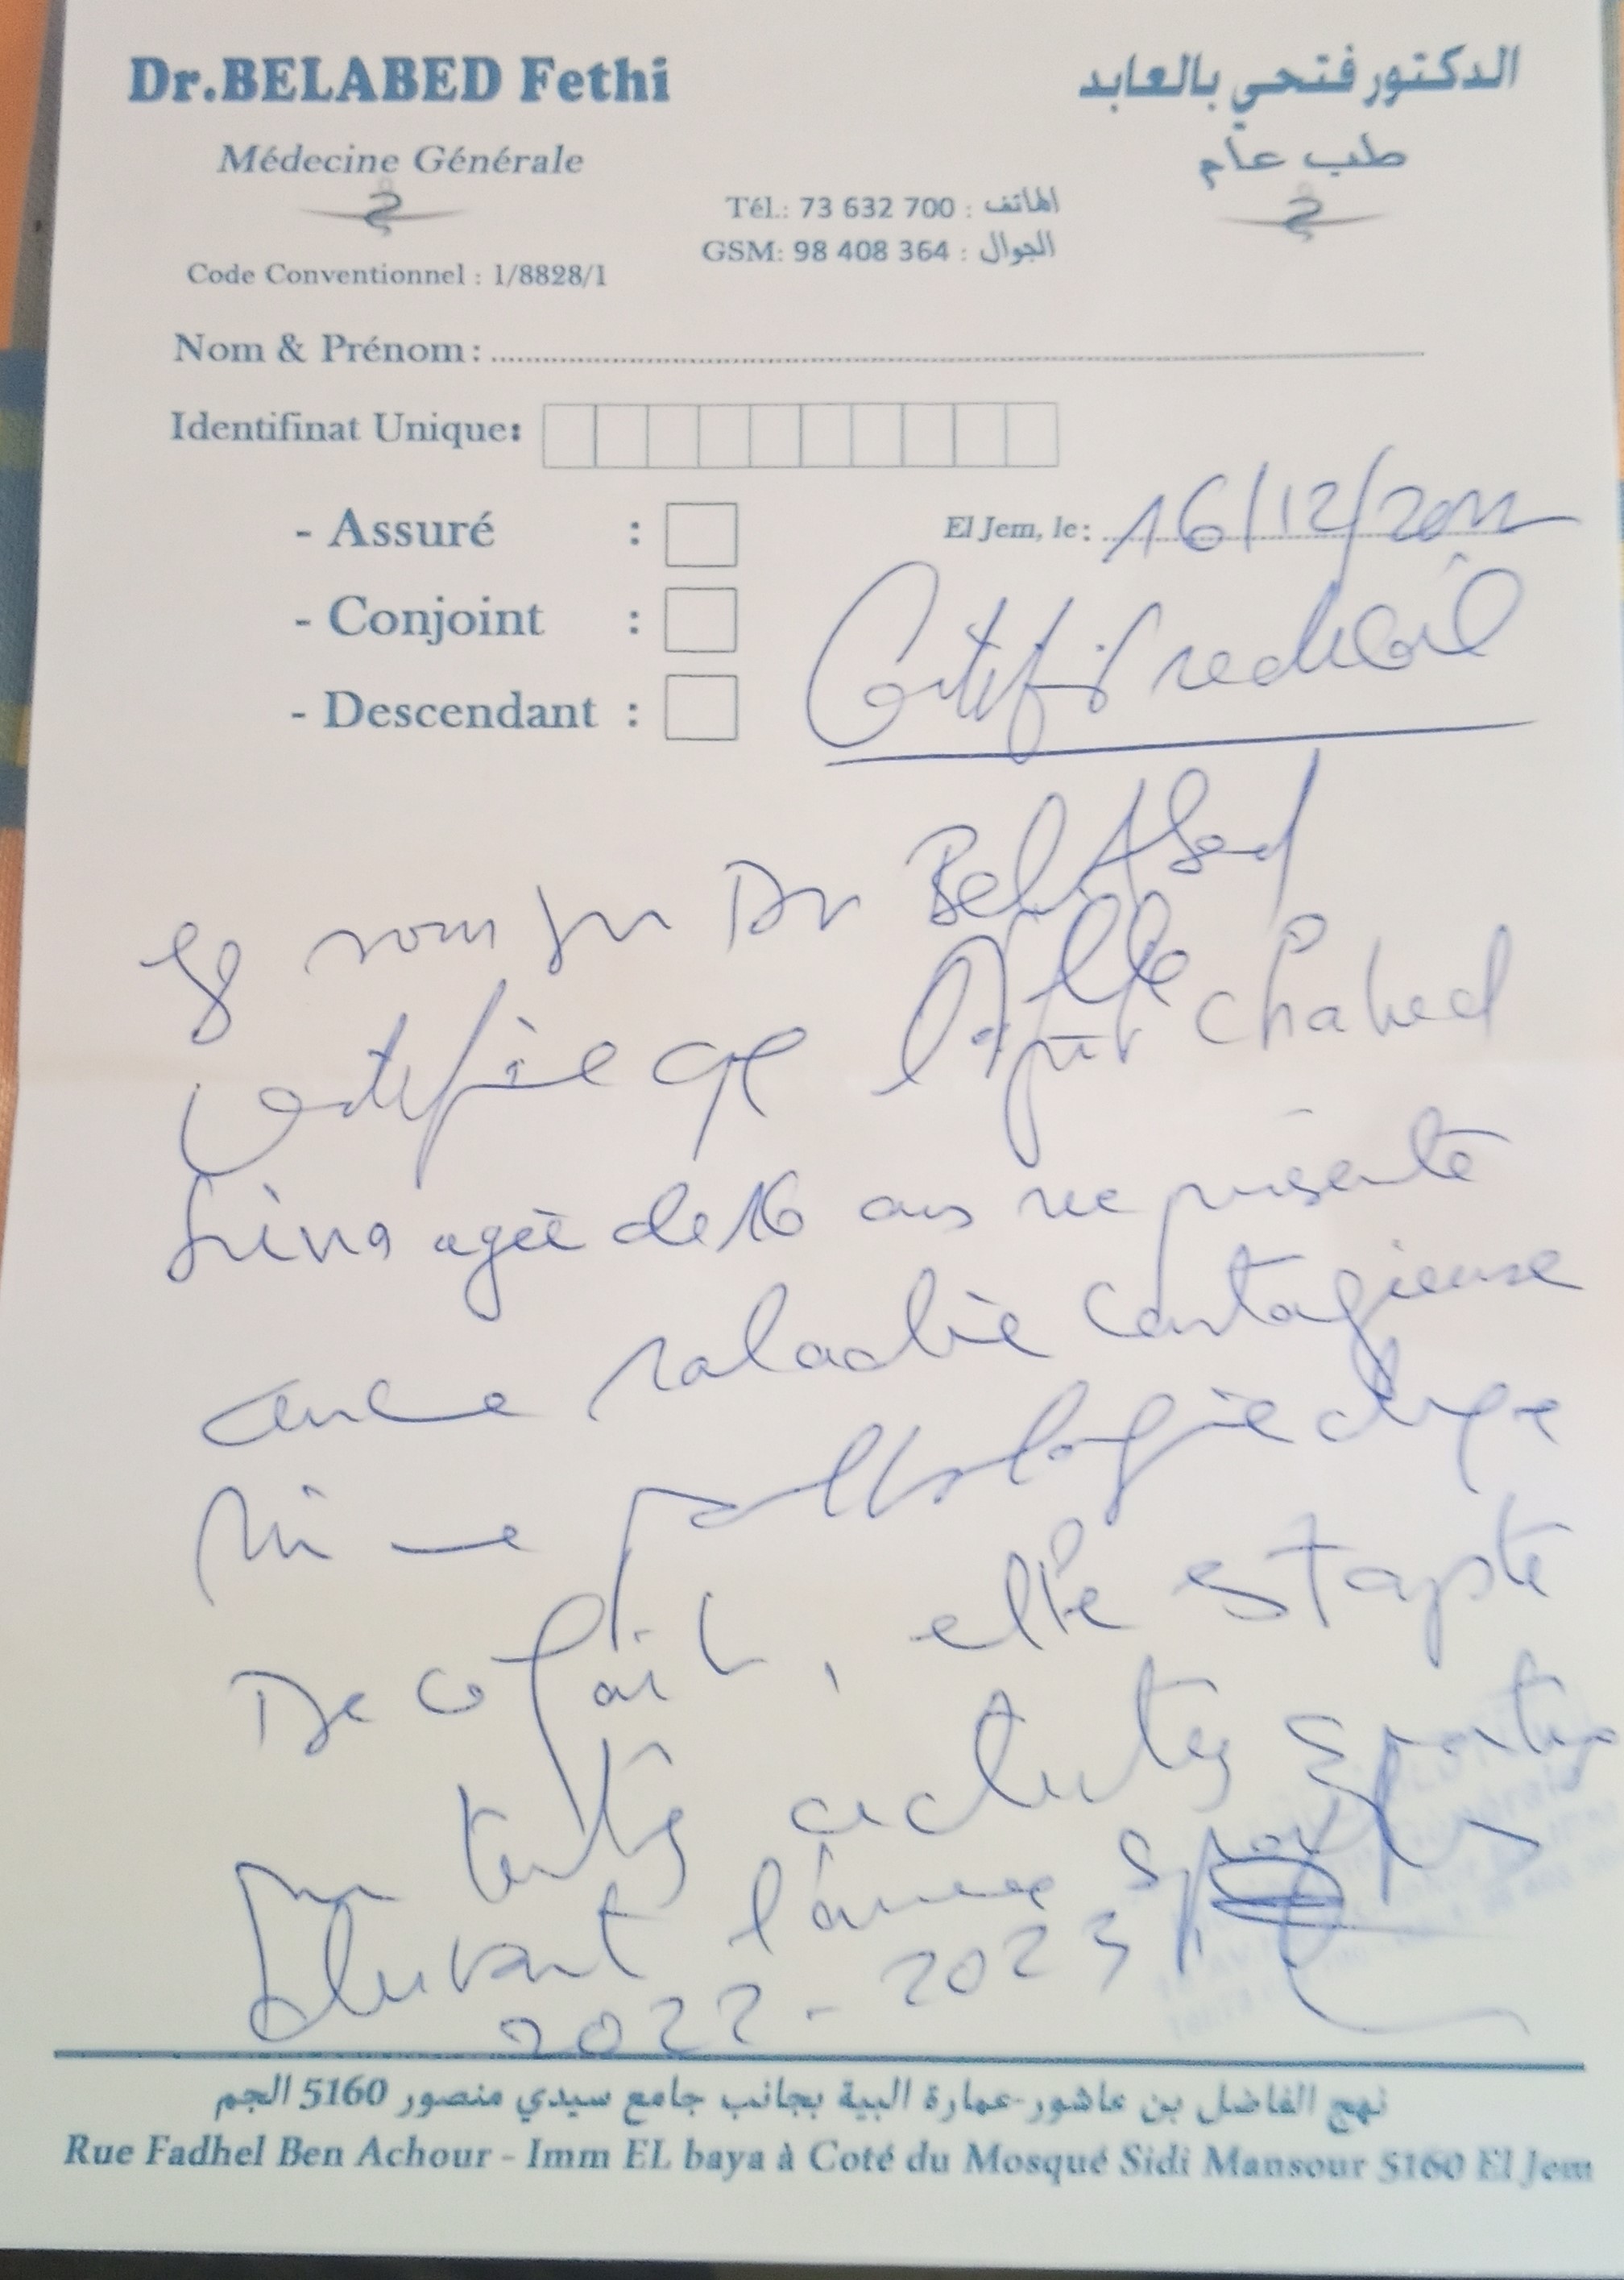 Dr.BELABED Fethi
الدكتور فتحي بالعابد
Médecine Générale
طب عام
Tél.: 73 632 700 : الهاتف
GSM: 98 408 364 : الجوال
Code Conventionnel : 1/8828/1
Nom & Prénom :
Identifinat Unique:
- Assuré :
El Jem, le : 16/12/2022
- Conjoint :
Certificat médical
- Descendant :
Je soussigné Dr Bel Abed
certifie que chahed
agée de 16 ans ne présente
aucune maladie contagieuse
ni une pathologie
De ce fait, elle est apte
pour toutes activités sportives
durant l'année
2022 - 2023
نهج الفاضل بن عاشور-عمارة البية بجانب جامع سيدي منصور 5160 الجم
Rue Fadhel Ben Achour - Imm EL baya à Coté du Mosqué Sidi Mansour 5160 El Jem